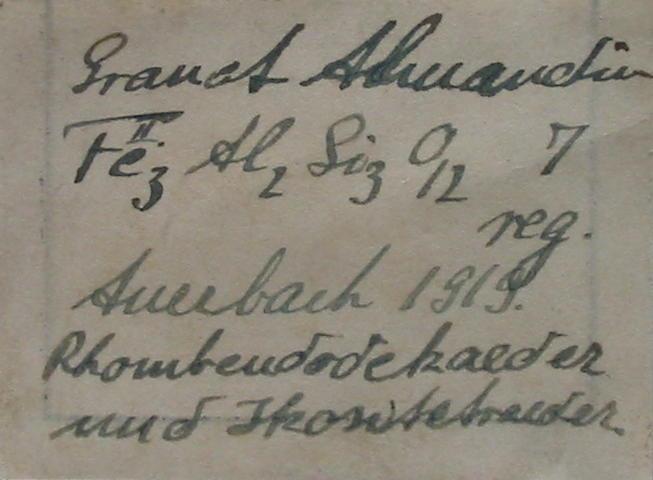 Granat Almandin
Fe₃ᴵᴵ Al₂ Si₃ O₁₂ 7
reg.
Auerbach 1919.
Rhombendodekaeder
und Ikositetraeder